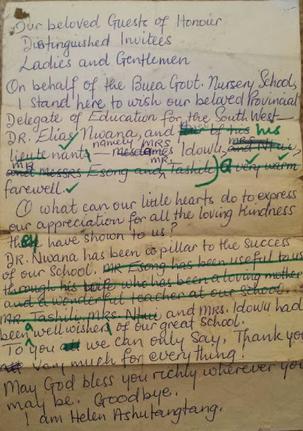 Our beloved Guests of Honour
Distinguished Invitees
Ladies and Gentlemen
On behalf of the Buea Govt. Nursery School,
I Stand here to wish our beloved Provincial
Delegate of Education for the South West—
DR. Elias Nwana, and his
namely MRS
Lieutenants mesdames Idowu, and Ntui,
MR. MR.
and Messrs Esong and Tashili) a very warm
farewell.
O what can our little hearts do to express
our appreciation for all the loving Kindness
they have shown to us?
DR. Nwana has been a pillar to the success
of our School. Mr Esong has been useful to us
through his wife who has been a loving mother
and a wonderful teacher at our school.
Mr. Tashili, Mrs. Ntui and Mrs. Idowu had
been well wishers of our great School.
To you all we can only Say, Thank you
very much for everything!
May God bless you richly wherever you
may be. Goodbye.
I am Helen Ashutangtang.